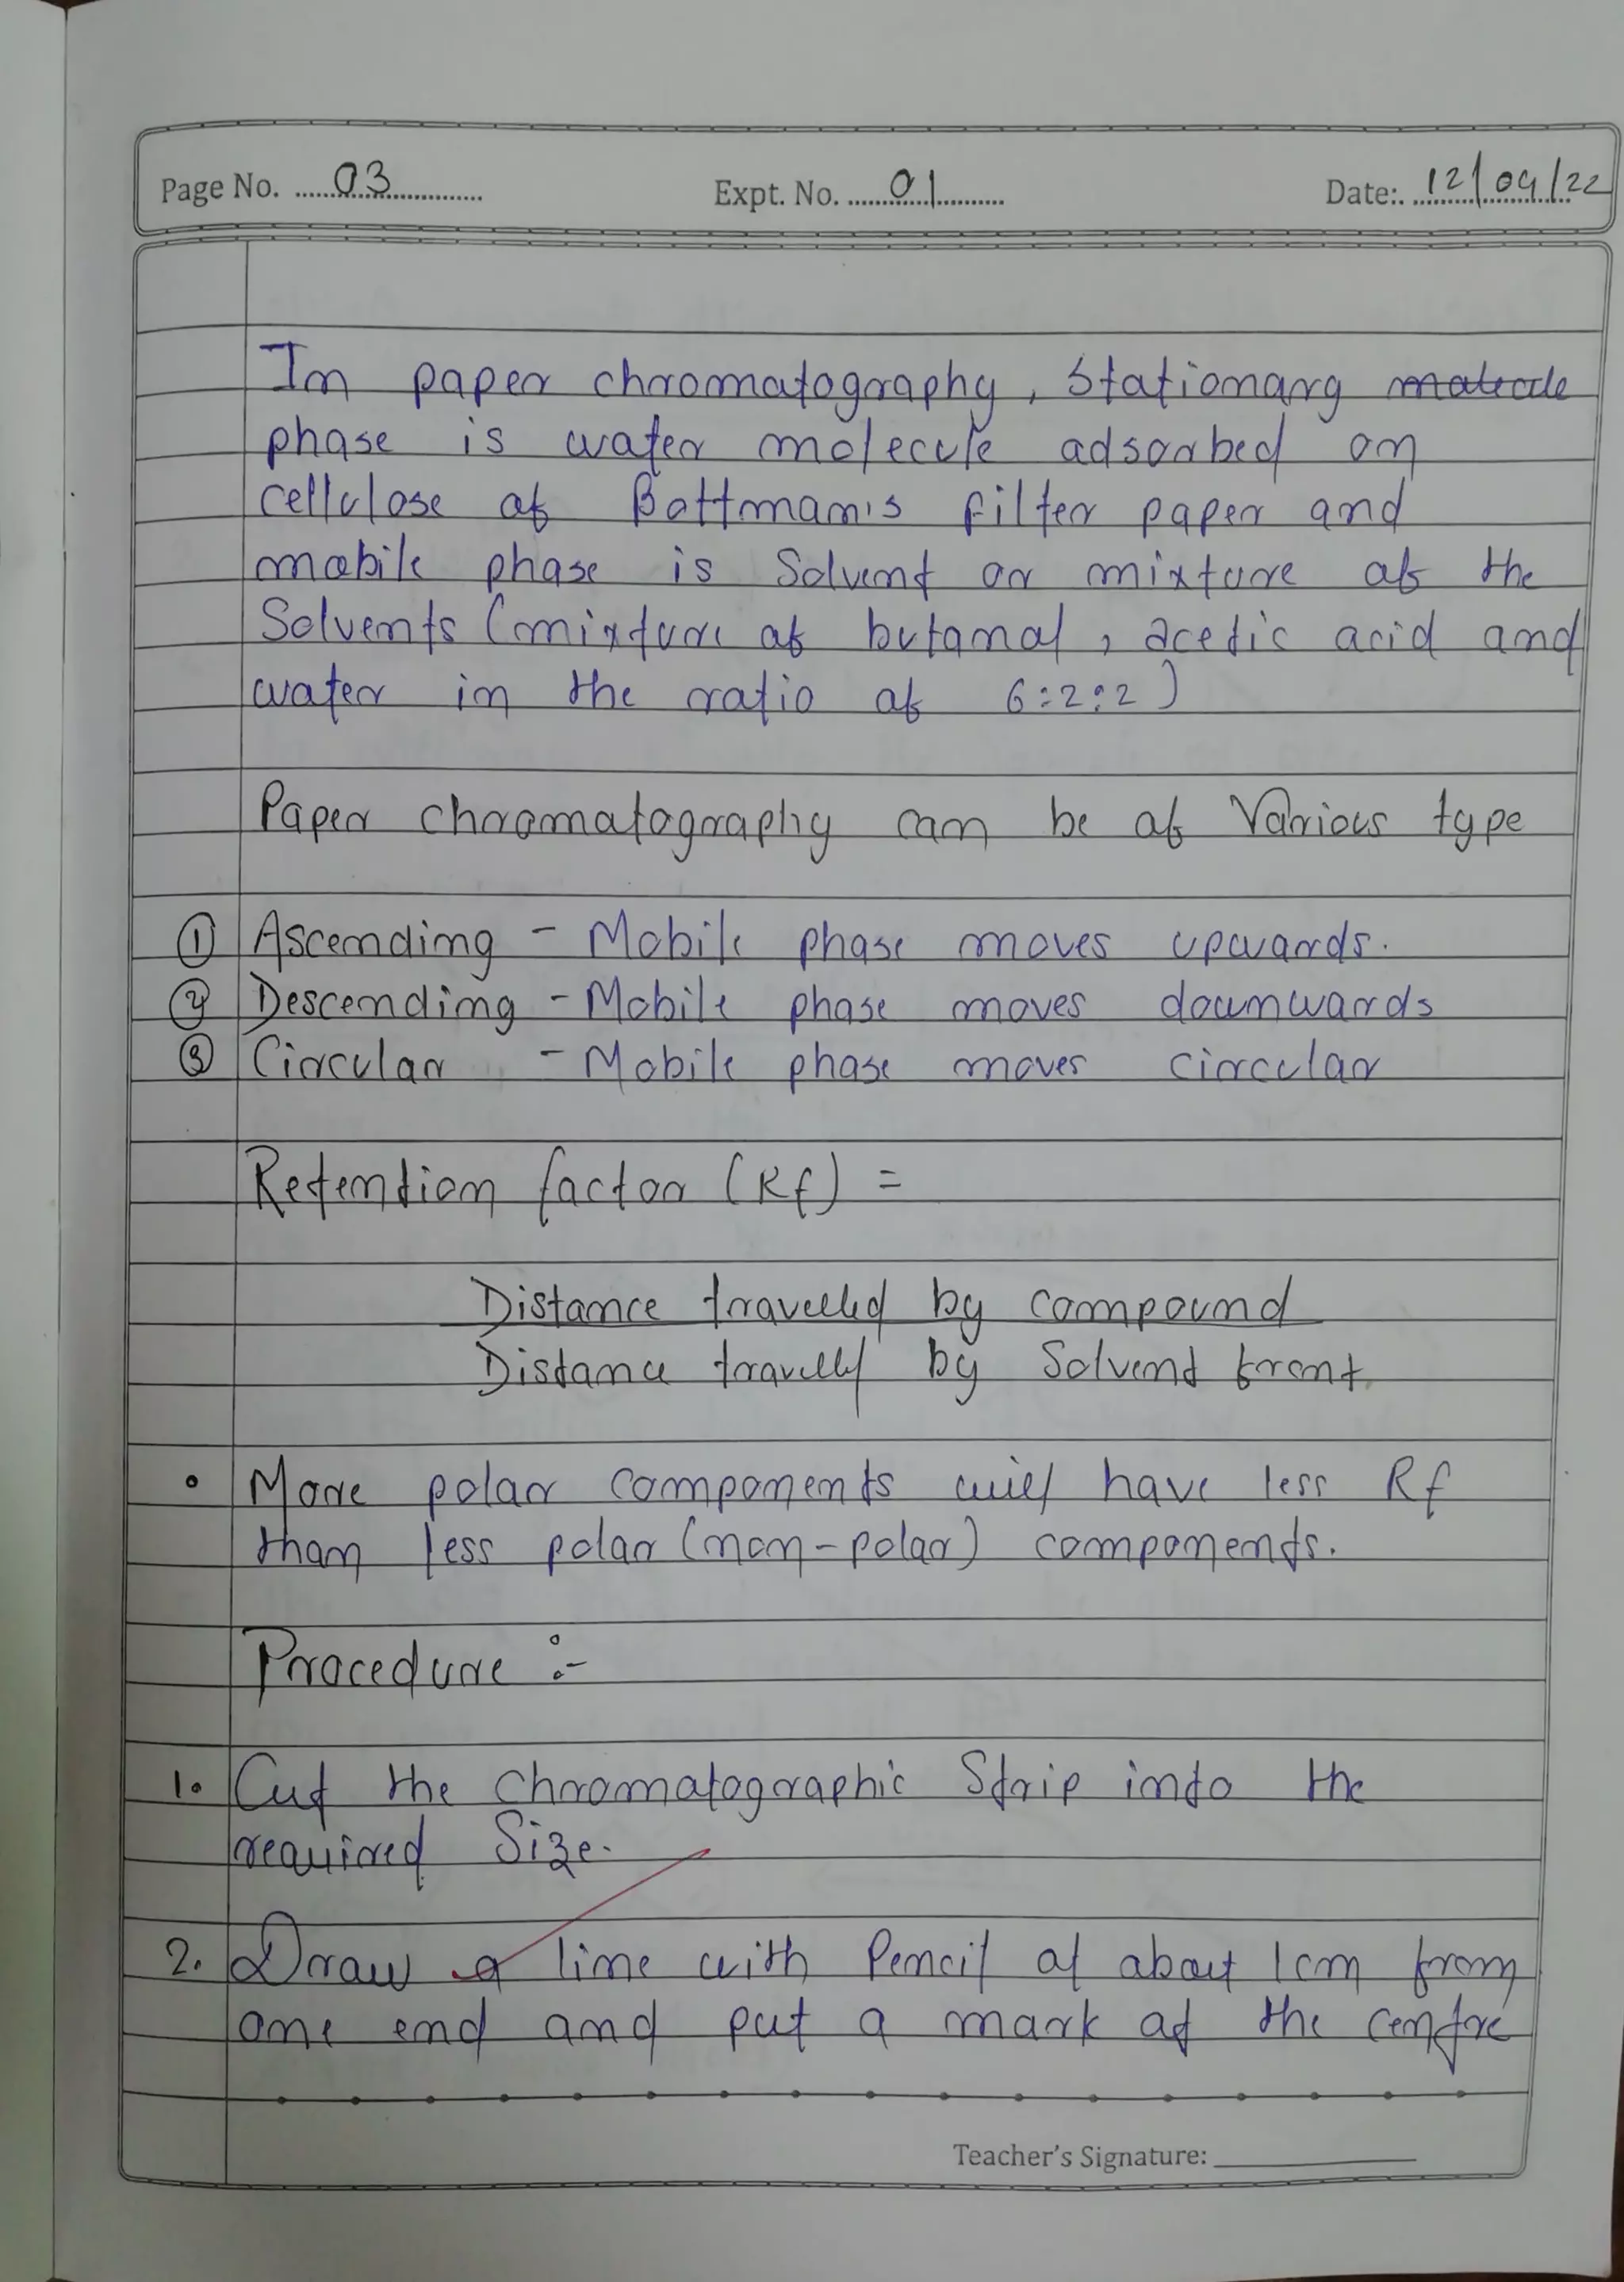 Page No. 03 Expt. No. 01 Date: 12/09/22
In paper chromatography, Stationary
phase is water molecule adsorbed on
cellulose of Bottmann's filter paper and
mobile phase is Solvent or mixture of the
Solvents (mixture of butanol, acetic acid and
water in the ratio of 6:2:2)
Paper chromatography can be of Various type
① Ascending - Mobile phase moves upwards.
② Descending - Mobile phase moves downwards
③ Circular - Mobile phase moves circular
Retention factor (Rf) =
Distance travelled by compound
Distance travelled by Solvent front
• More polar components will have less Rf
than less polar (non-polar) components.
Procedure :-
1. Cut the Chromatographic Strip into the
required Size.
2. Draw a line with Pencil at about 1cm from
one end and put a mark at the centre
Teacher's Signature: